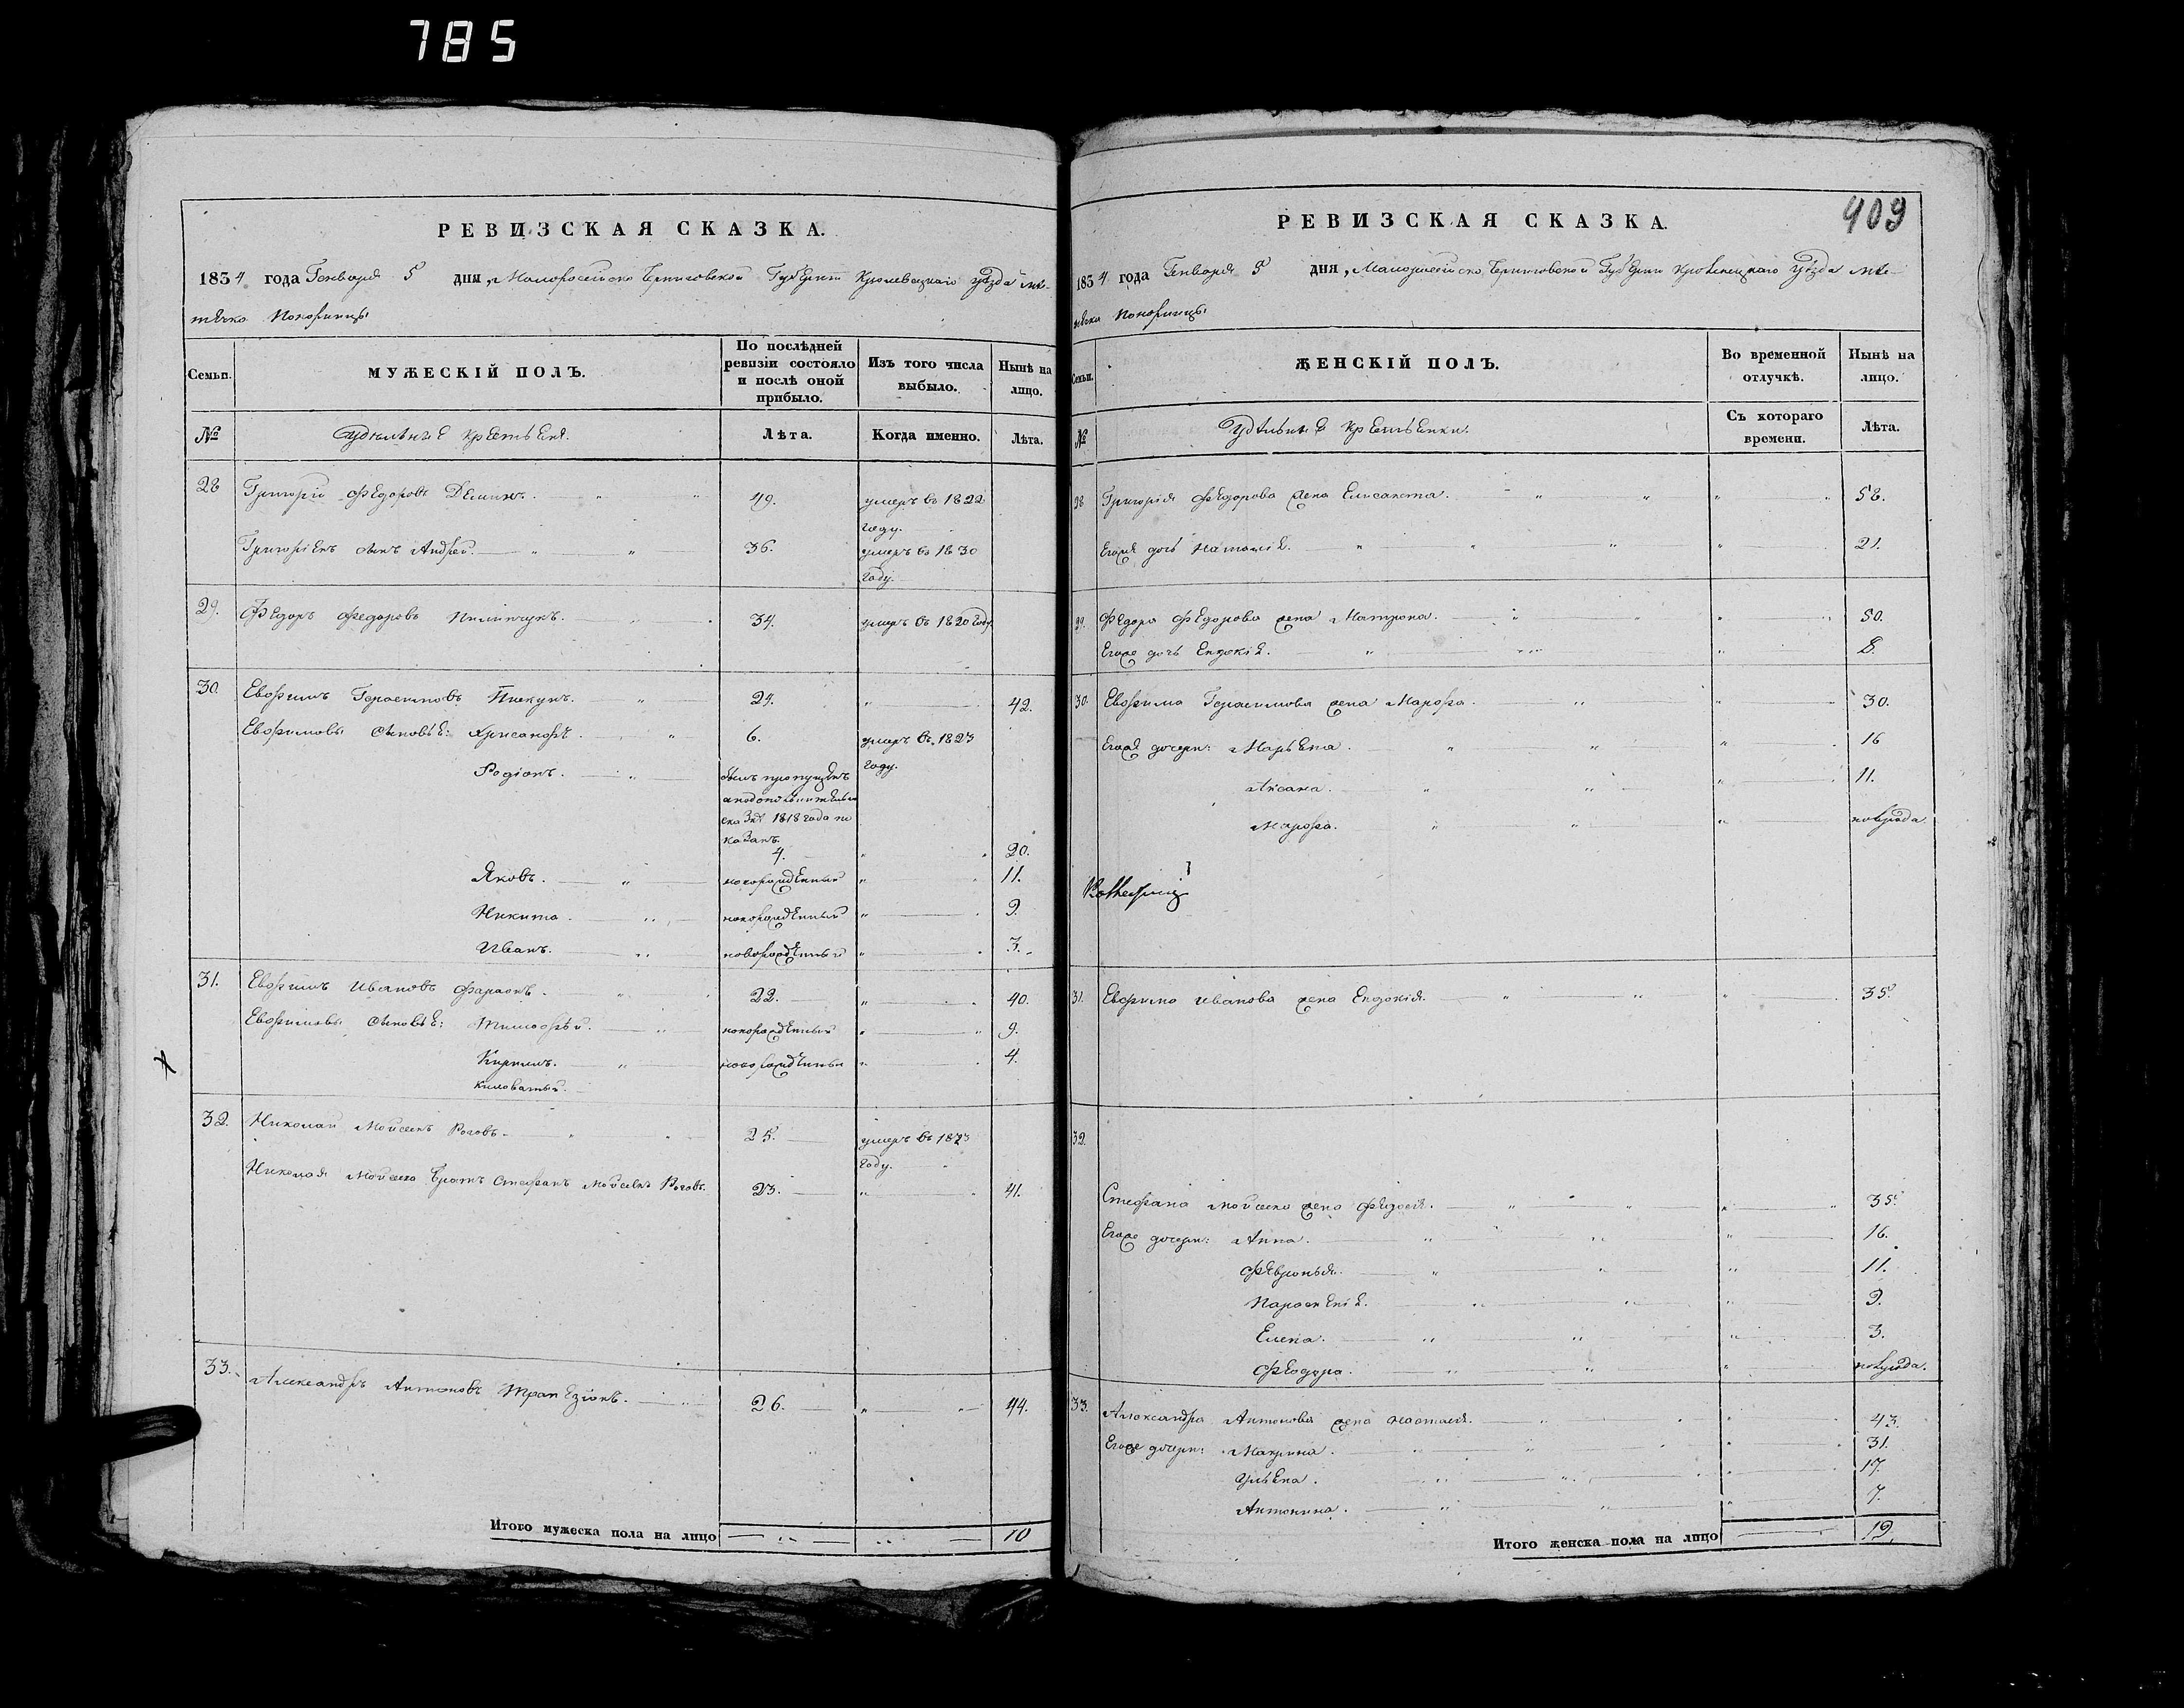 785
РЕВИЗСКАЯ СКАЗКА.
1834 года Генваря 5 дня, Малоросейско Черниговской Губернии Кролевецкаго уѣзда мѣ-
стѣчка Понорницы
Семьи. МУЖЕСКІЙ ПОЛЪ. По послѣдней ревизіи состояло и послѣ оной прибыло. Изъ того числа выбыло. Нынѣ на лицо.
№ Удельные крестьяня. Лѣта. Когда именно. Лѣта.
28 Григорій Федоровъ 49. умеръ въ 1822 году.
Григоріевъ сынъ Андрей. 36. умеръ въ 1830 году.
29. Федоръ Федоровъ 34. умеръ въ 1820 году
30. Евфимъ Герасимовъ 24. 42.
Евфимовы сыновья: Хрисанфъ. 6. умеръ въ 1823 году.
Родіонъ. былъ пропущенъ
1818 года по
казанъ.
4. 20.
Яковъ. новорожденный 11.
Никита. новорожденный 9.
Иванъ. новорожденный 3.
31. Евфимъ Ивановъ Фараонъ. 22. 40.
Евфимовы сыновья: Тимофей. новорожденный 9.
Кирилъ. новорожденный 4.
Киловатый.
32. Николай Мойсеевъ Роговъ. 25. умеръ въ 1823 году.
Николая Мойсеева братъ Стефанъ Мойсеевъ Роговъ. 23. 41.
33. Александръ Антоновъ Трапезіонъ. 26. 44.
Итого мужеска пола на лицо 10
409
РЕВИЗСКАЯ СКАЗКА.
1834 года Генваря 5 дня, Малоросейско Черниговской Губернии Кролевецкаго уѣзда мѣ-
стѣчка Понорницы
Семьи. ЖЕНСКІЙ ПОЛЪ. Во временной отлучкѣ. Нынѣ на лицо.
№ Удельные крестьянки. Съ котораго времени. Лѣта.
28 Григорія Федорова жена Елисавета. 58.
Егожъ дочь Наталія. 21.
29. Федора Федорова жена Матрона. 50.
Егоже дочь Евдокія. 8.
30. Евфима Герасимова жена Марфа. 30.
Егожъ дочери: Марьяна. 16
Аксана. 11.
Марфа. полгода
31. Евфима Иванова жена Евдокія. 35.
32.
Стефана Мойсеева жена Федосія. 35.
Егоже дочери: Анна. 16.
Февронья. 11.
Параскевія. 9.
Елена. 3.
Феодора. полгода.
33. Александра Антонова жена Настасія. 43.
Егоже дочери: Макрина. 31.
Ульяна. 17.
Антонина. 7.
Итого женска пола на лицо 19.